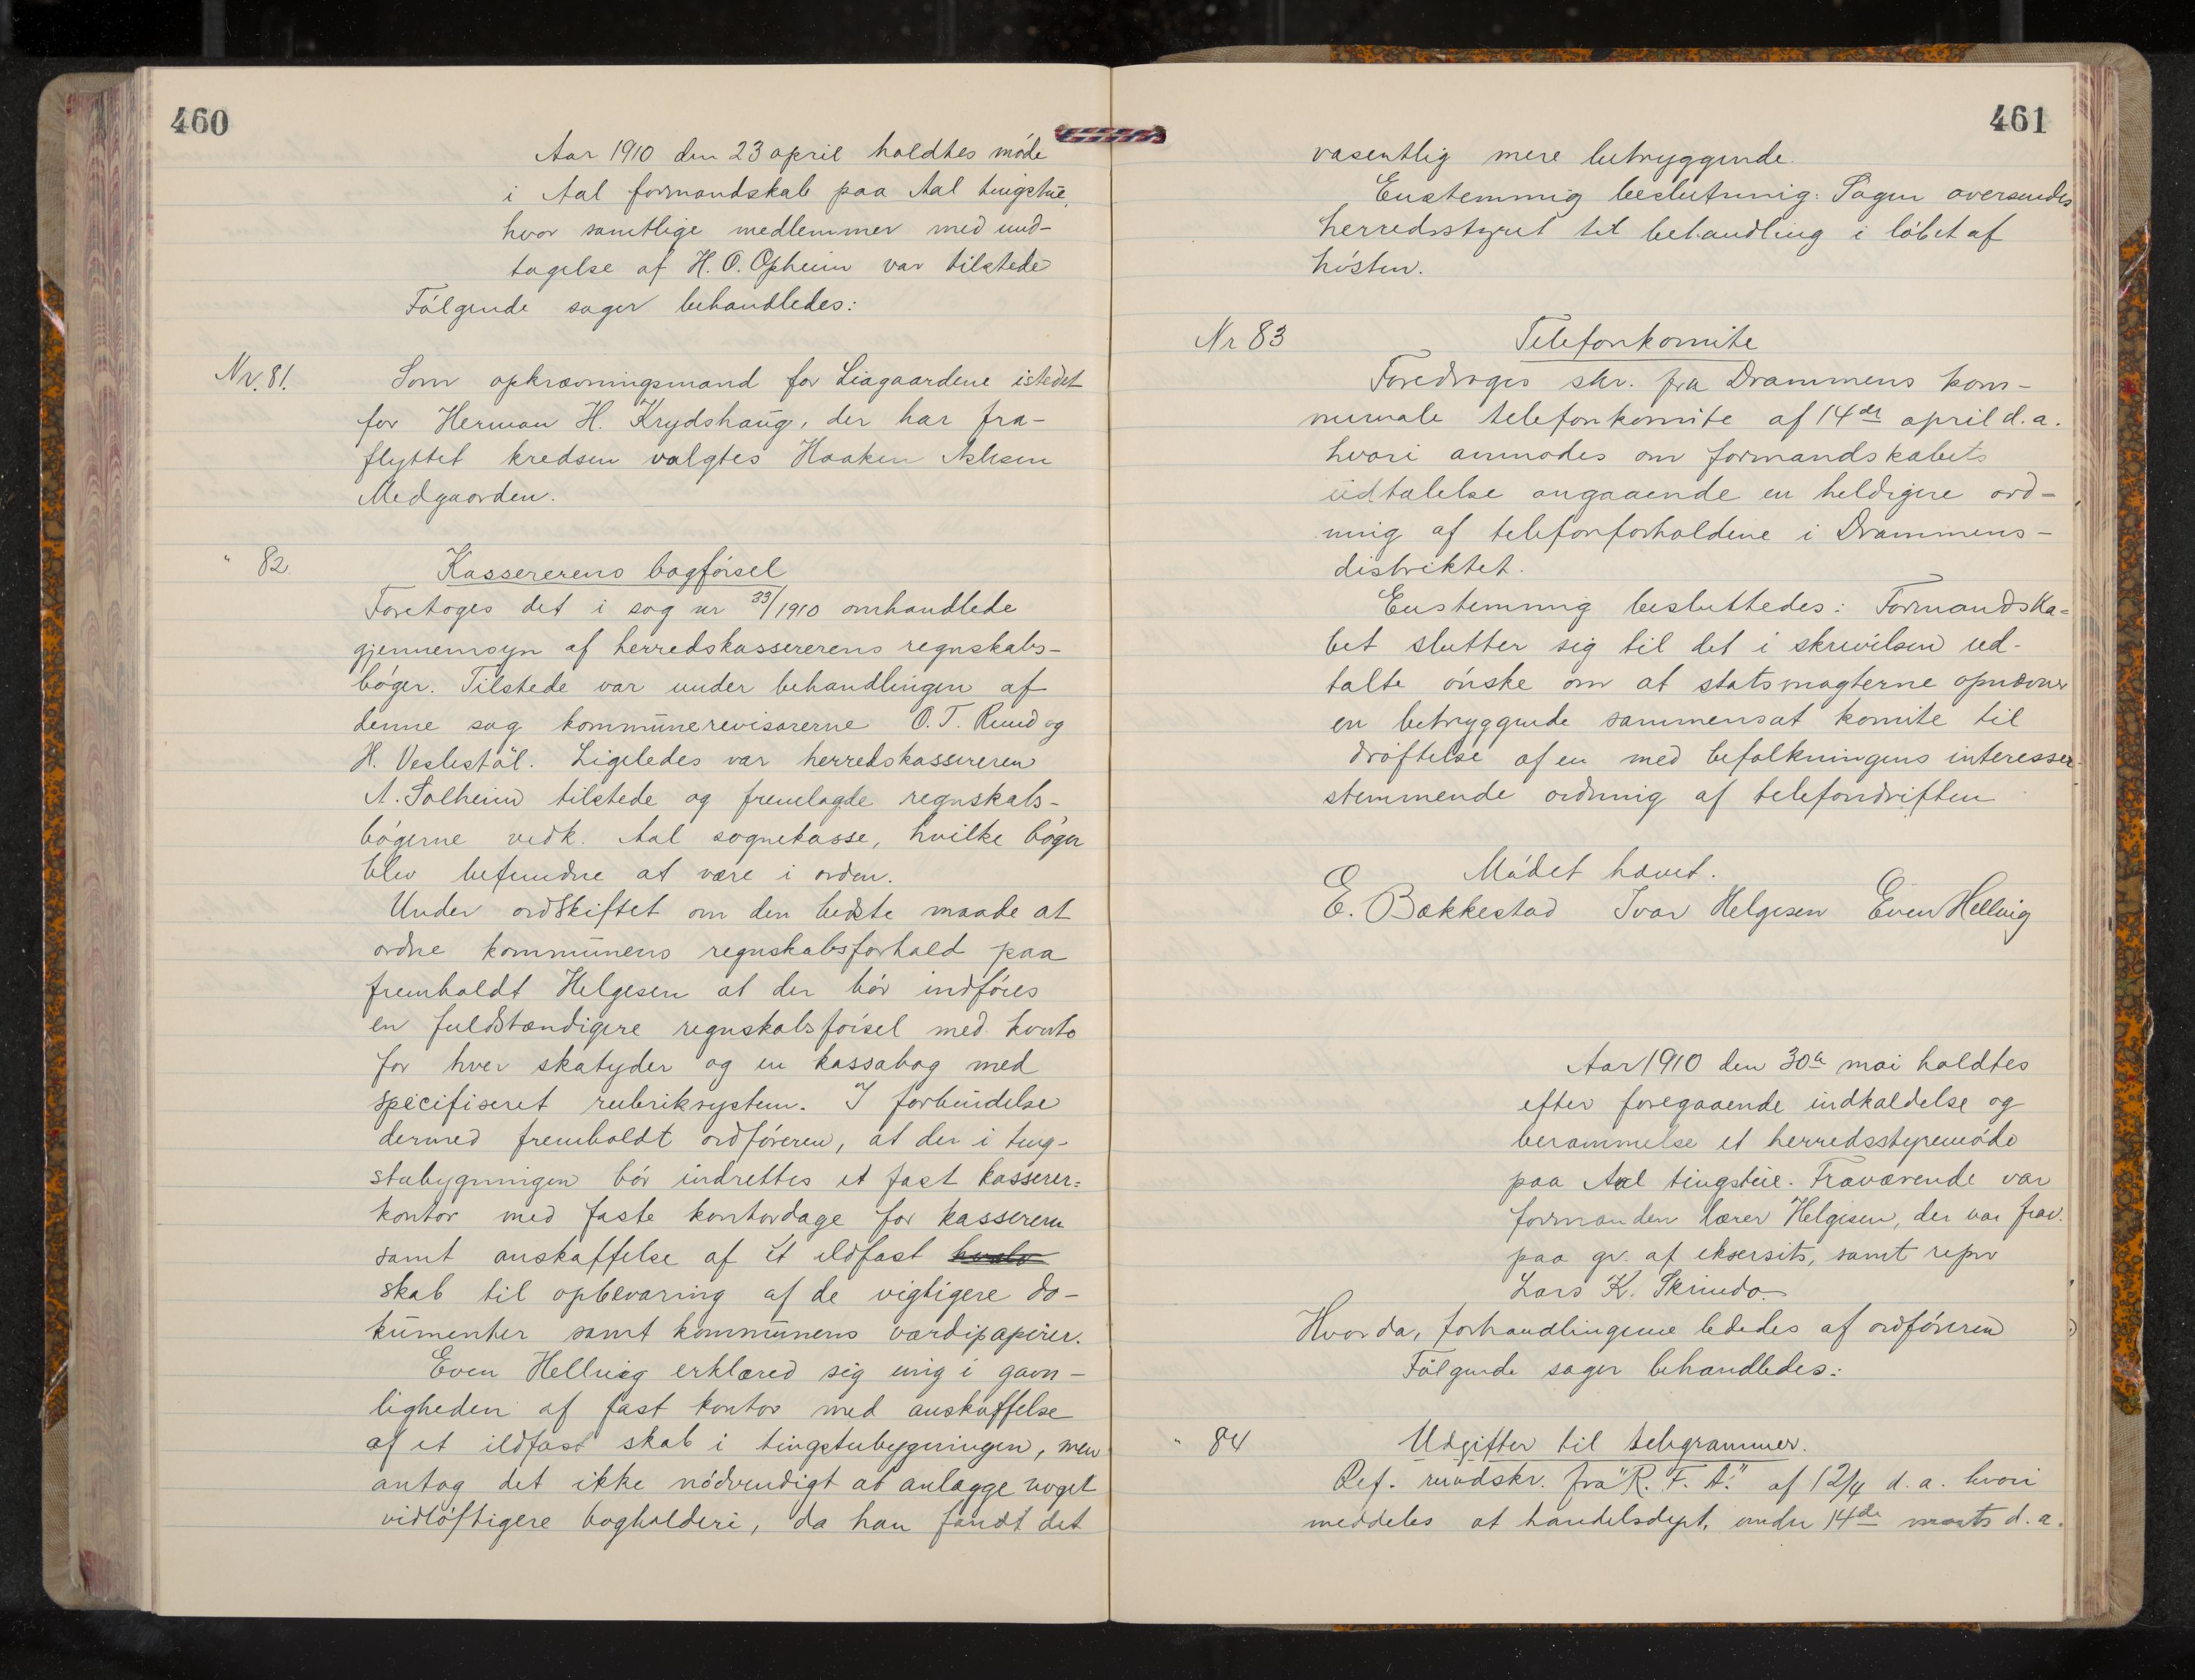 460
Aar 1910 den 23 april holdtes møde
i Aal formandskab paa Aal tingstue,
hvor samtlige medlemmer med und-
tagelse af H. O. Opheim var tilstede
Følgende sager behandledes:
Nr. 81. Som opkrævningsmand for Liagaardene istedet
for Herman H. Krydshaug, der har fra-
flyttet kredsen valgtes Haaken Aslesen
Medgaarden.
" 82. Kassererens bogførsel
Foretoges det i sag nr 33/1910 omhandlede
gjennemsyn af herredskassererens regnskabs-
bøger. Tilstede var under behandlingen af
denne sag kommunerevisorerne O. T. Ruud og
H. Veslestøl. Ligeledes var herredskassereren
A. Solheim tilstede og fremlagde regnskabs-
bøgerne vedk. Aal sognekasse, hvilke bøger
blev befundne at være i orden.
Under ordskiftet om den bedste maade at
ordne kommunens regnskabsforhold paa
fremholdt Helgesen at der bør indføres
en fuldstændigere regnskabsførsel med konto
for hver skatyder og en kassabog med
specifiseret rubriksystem. I forbindelse
dermed fremholdt ordføreren, at der i ting-
stubygningen bør indrettes et fast kasserer=
kontor med faste kontordage for kassereren
samt anskaffelse af et ildfast
skab til opbevaring af de vigtigere do-
kumenter samt kommunens værdipapirer.
Even Hellvig erklæred sig enig i gavn-
ligheden af fast kontor med anskaffelse
af et ildfast skab i tingstubygningen, men
antog det ikke nødvendigt at anlægge noget
vidløftigere bogholderi, da han fandt det
461
væsentlig mere betryggende.
Enstemmig beslutning: Sagen oversendes
herredsstyret til behandling i løbet af
høsten.
Nr 83 Telefonkomite
Foredroges skr. fra Drammens kom-
munale telefonkomite af 14de april d. a.
hvori anmodes om formandskabets
udtalelse angaaende en heldigere ord-
ning af telefonforholdene i Drammens-
distriktet.
Enstemmig besluttedes: Formandska=
bet slutter sig til det i skrivelsen ud-
talte ønske om at statsmagterne opnævner
en betryggende sammensat komite til
drøftelse af en med befolkningens interesser
stemmende ordning af telefondriften
Mødet hævet.
E. Bækkestad Ivar Helgesen Even Hellvig
Aar 1910 den 30te mai holdtes
efter foregaaende indkaldelse og
berammelse et herredsstyremøde
paa Aal tingstue. Fraværende var
formanden lærer Helgesen, der var frav.
paa gr. af eksersits, samt repr
Lars K. Skrindo.
Hvorda, forhandlingerne lededes af ordføreren
Følgende sager behandledes:
" 84 Udgifter til telegrammer.
Ref. rundskr. fra "R. F. A." af 12/4 d. a. hvori
meddeles at handelsdept. under 14de marts d. a.